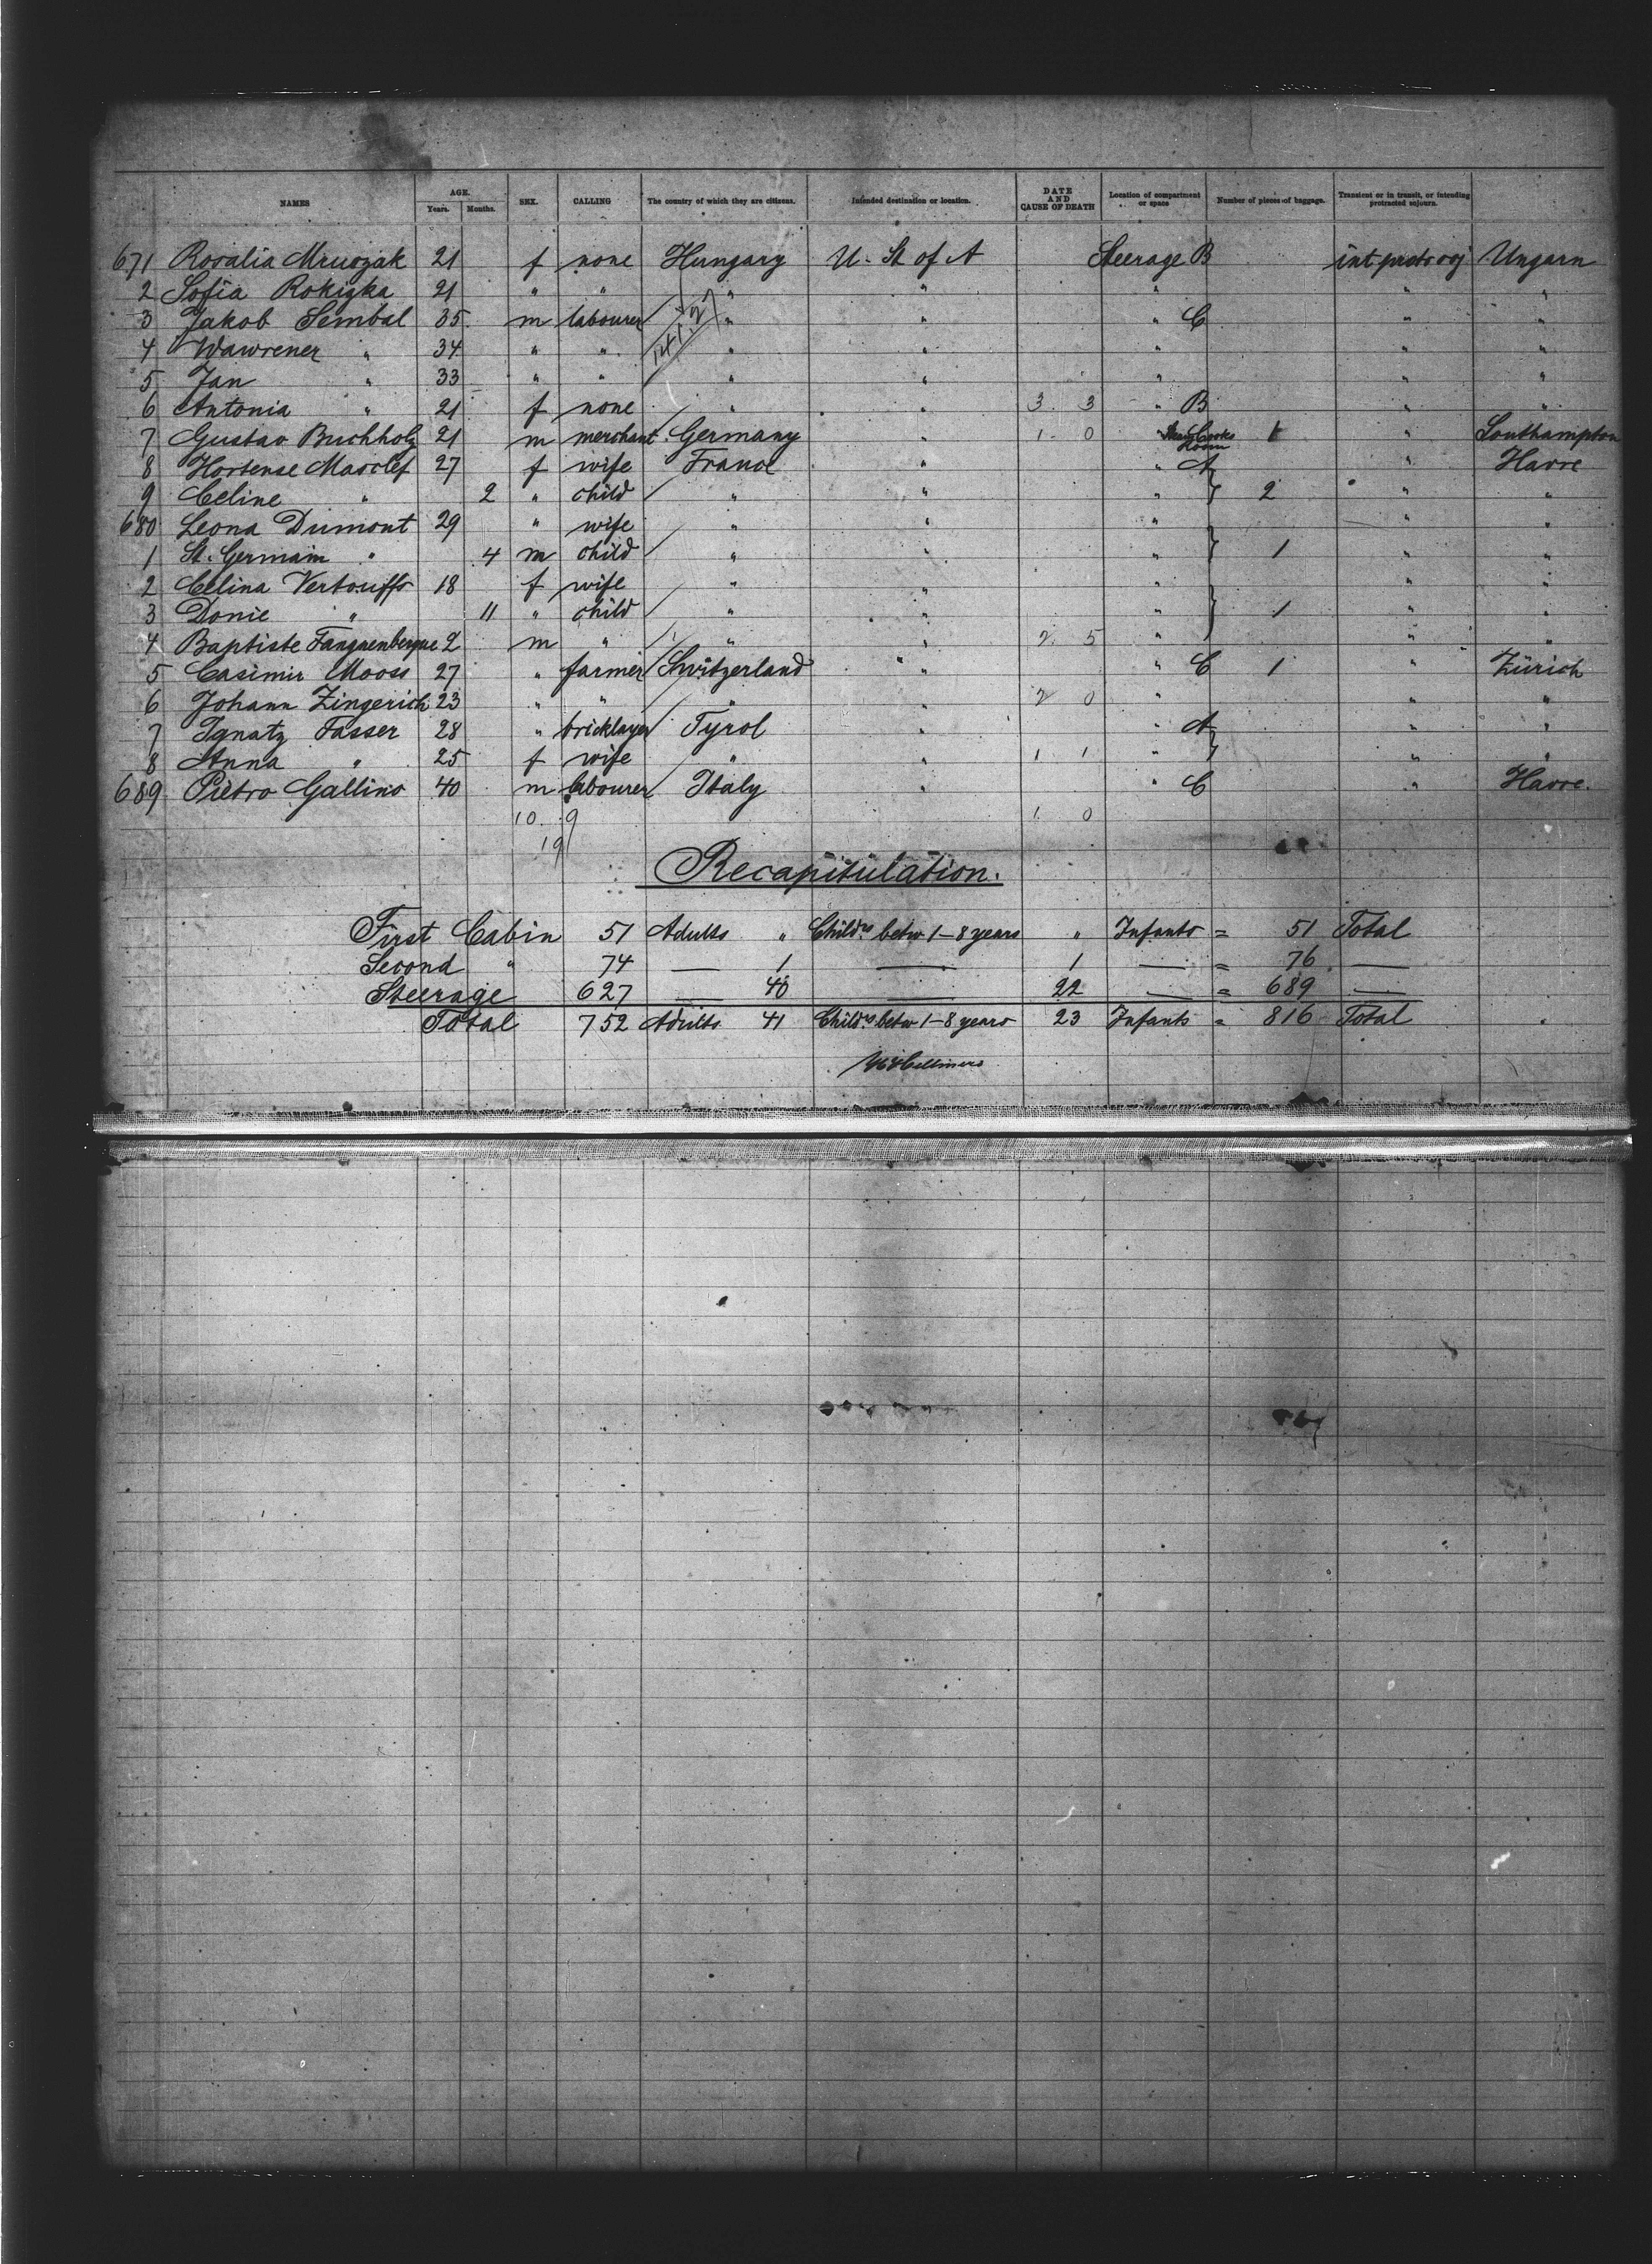 NAMES AGE. Years. Months. SEX. CALLING The country of which they are citizens. Intended destination or location. DATE AND CAUSE OF DEATH Location of compartment or space Number of pieces of baggage. Transient or in transit, or intending protracted sojourn.
671 Rosalia Mruczak 21 f none Hungary U. St of A Steerage B int. protr. soj Ungarn
2 Sofia Rokizka 21 " " " " " " "
3 Jakob Sembal 35 m labourer " " " C " "
4 Wawrener " 34 " " " " " " "
5 Jan " 33 " " " " " " "
6 Antonia " 21 f none " " 3 3 " B " "
7 Gustav Buchholz 21 m merchant Germany " 1 0 " Room 1 " Southampton
8 Hortense Masclef 27 f wife France " " A " Havre
9 Celine " 2 " child " " " } 2 " "
680 Leona Dumont 29 " wife " " " " "
1 St. Germain " 4 m child " " " } 1 " "
2 Celina 18 f wife " " " " "
3 Donie " 11 " child " " " } 1 " "
4 Baptiste 2 m " " " 2 5 " " "
5 Casimir Mooss 27 " farmer Switzerland " " C 1 " Zürich
6 Johann Zingerich 23 " " " " 2 0 " " "
7 Ignatz Fasser 28 " bricklayer Tyrol " " A " "
8 Anna " 25 f wife " " 1 1 " } " "
689 Pietro Gallino 40 m labourer Italy " " C " Havre.
10 9 1 0
19
Recapitulation.
First Cabin 51 Adults " Childrs betw 1–8 years " Infants = 51 Total
Second " 74 — 1 — 1 — = 76 —
Steerage 627 — 40 — 22 — = 689 —
Total 752 Adults 41 Childrs betw 1–8 years 23 Infants = 816 Total